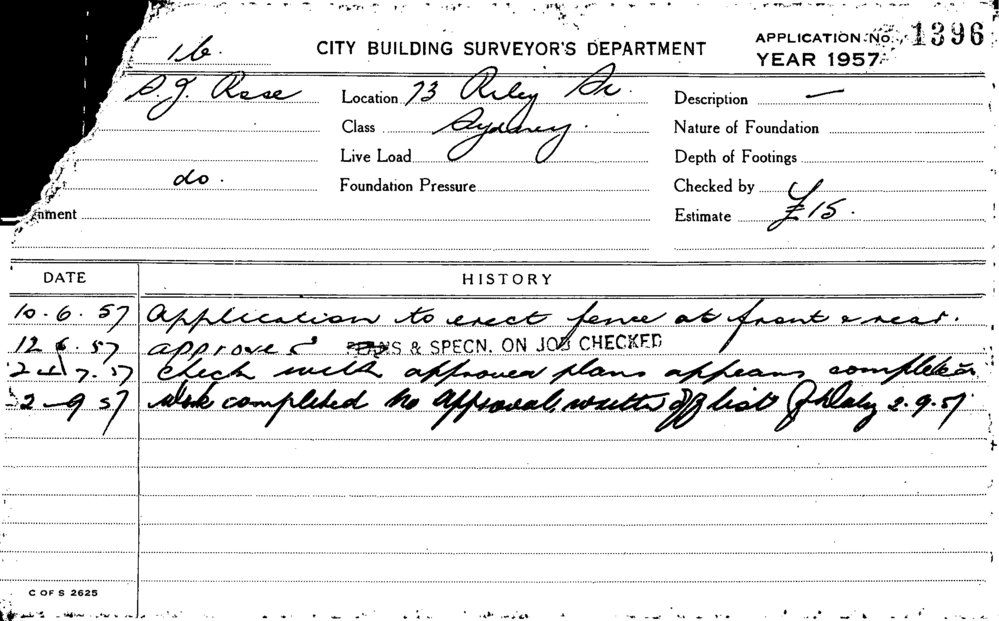 16. CITY BUILDING SURVEYOR'S DEPARTMENT APPLICATION No. 1396
YEAR 1957
S. J. Rose Location 73 Riley St. Description —
Class Sydney. Nature of Foundation
Live Load Depth of Footings
do. Foundation Pressure Checked by
nment Estimate £15.
DATE HISTORY
10.6.57 Application to erect fence at front & rear.
12 6.57 approved PLANS & SPECN. ON JOB CHECKED
24/7.57 Check with approved plans appears complete
2-9 57 Work completed to Approval, written off list 2.9.57
C OF S 2625